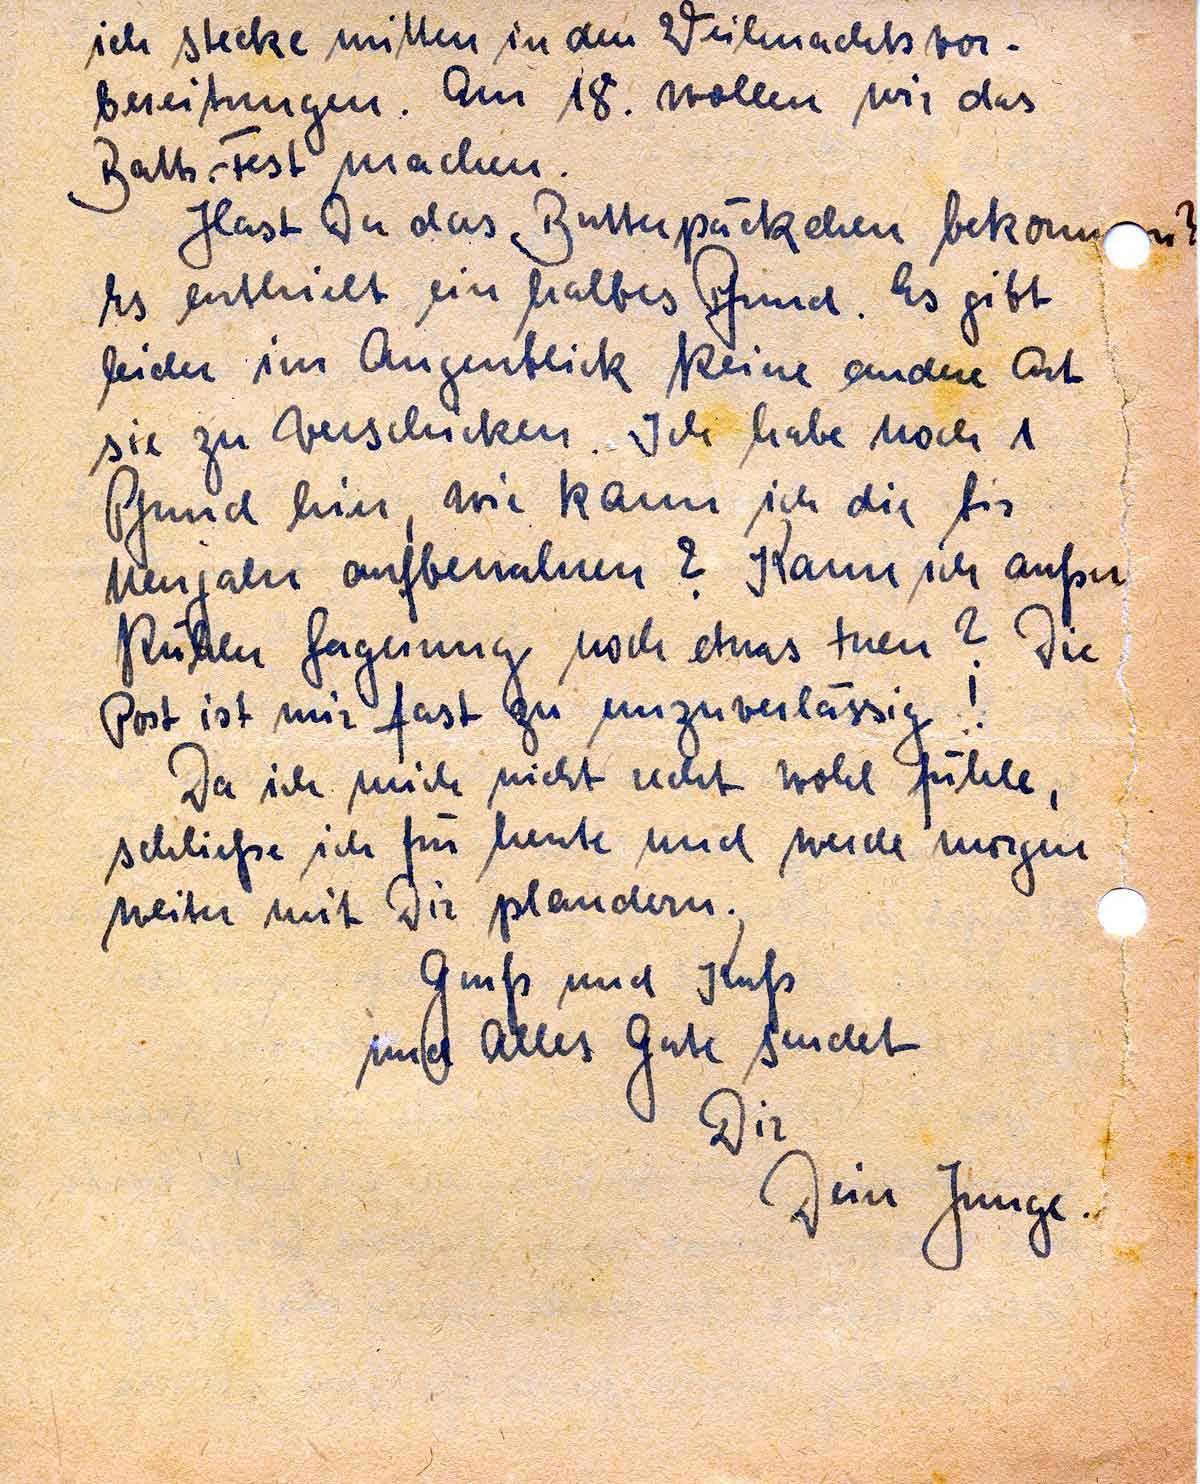 ich stecke mitten in den Weihnachtsvor-
bereitungen. Am 18. wollen wir das
Batts.-Fest machen.
Hast Du das Butterpäckchen bekommen?
Es enthielt ein halbes Pfund. Es gibt
leider im Augenblick keine andere Art
sie zu verschicken. Ich habe noch 1
Pfund hier, wie kann ich die bis
Neujahr aufbewahren? Kann ich außer
kühler Lagerung noch etwas tuen? Die
Post ist mir fast zu unzuverlässig!
Da ich mich nicht recht wohl fühle,
schließe ich für heute und werde morgen
weiter mit Dir plaudern.
Gruß und Kuß
und Alles Gute sendet
Dir
Dein Junge.